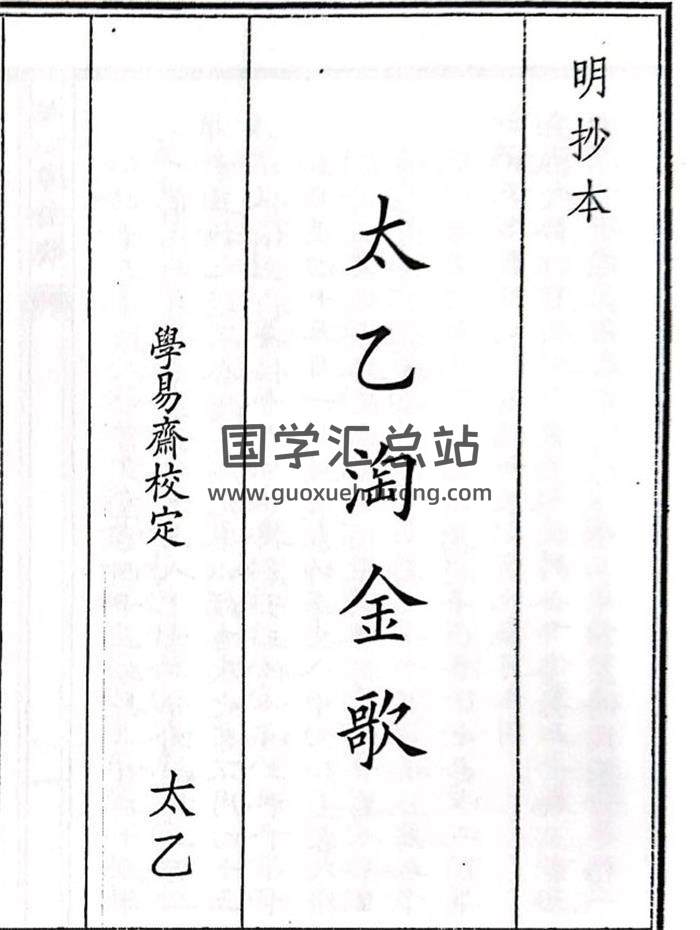 明抄本
太乙淘金歌
學易齋校定
太乙
国学汇总站
www.guoxuehuizong.com